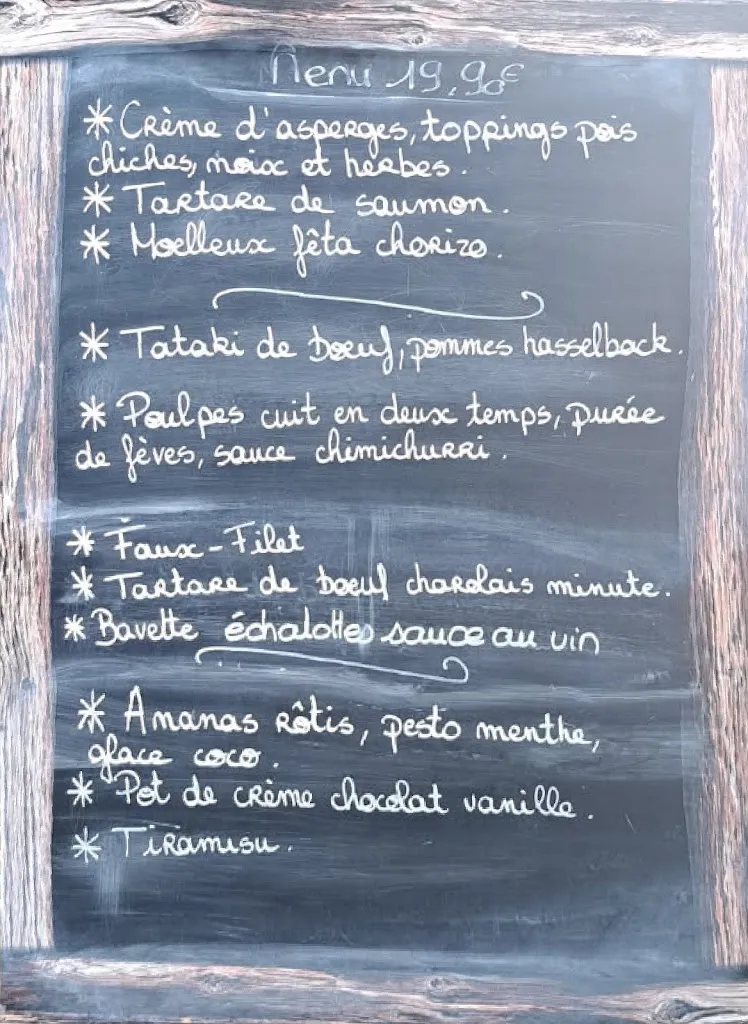 Menu 19,90€
* Crème d'asperges, toppings pois
chiches, noix et herbes.
* Tartare de saumon.
* Moelleux fêta chorizo.
* Tataki de boeuf, pommes hasselback.
* Poulpes cuit en deux temps, purée
de fèves, sauce chimichurri.
* Faux-Filet
* Tartare de boeuf charolais minute.
* Bavette échalottes sauce au vin
* Ananas rôtis, pesto menthe,
glace coco.
* Pot de crème chocolat vanille.
* Tiramisu.